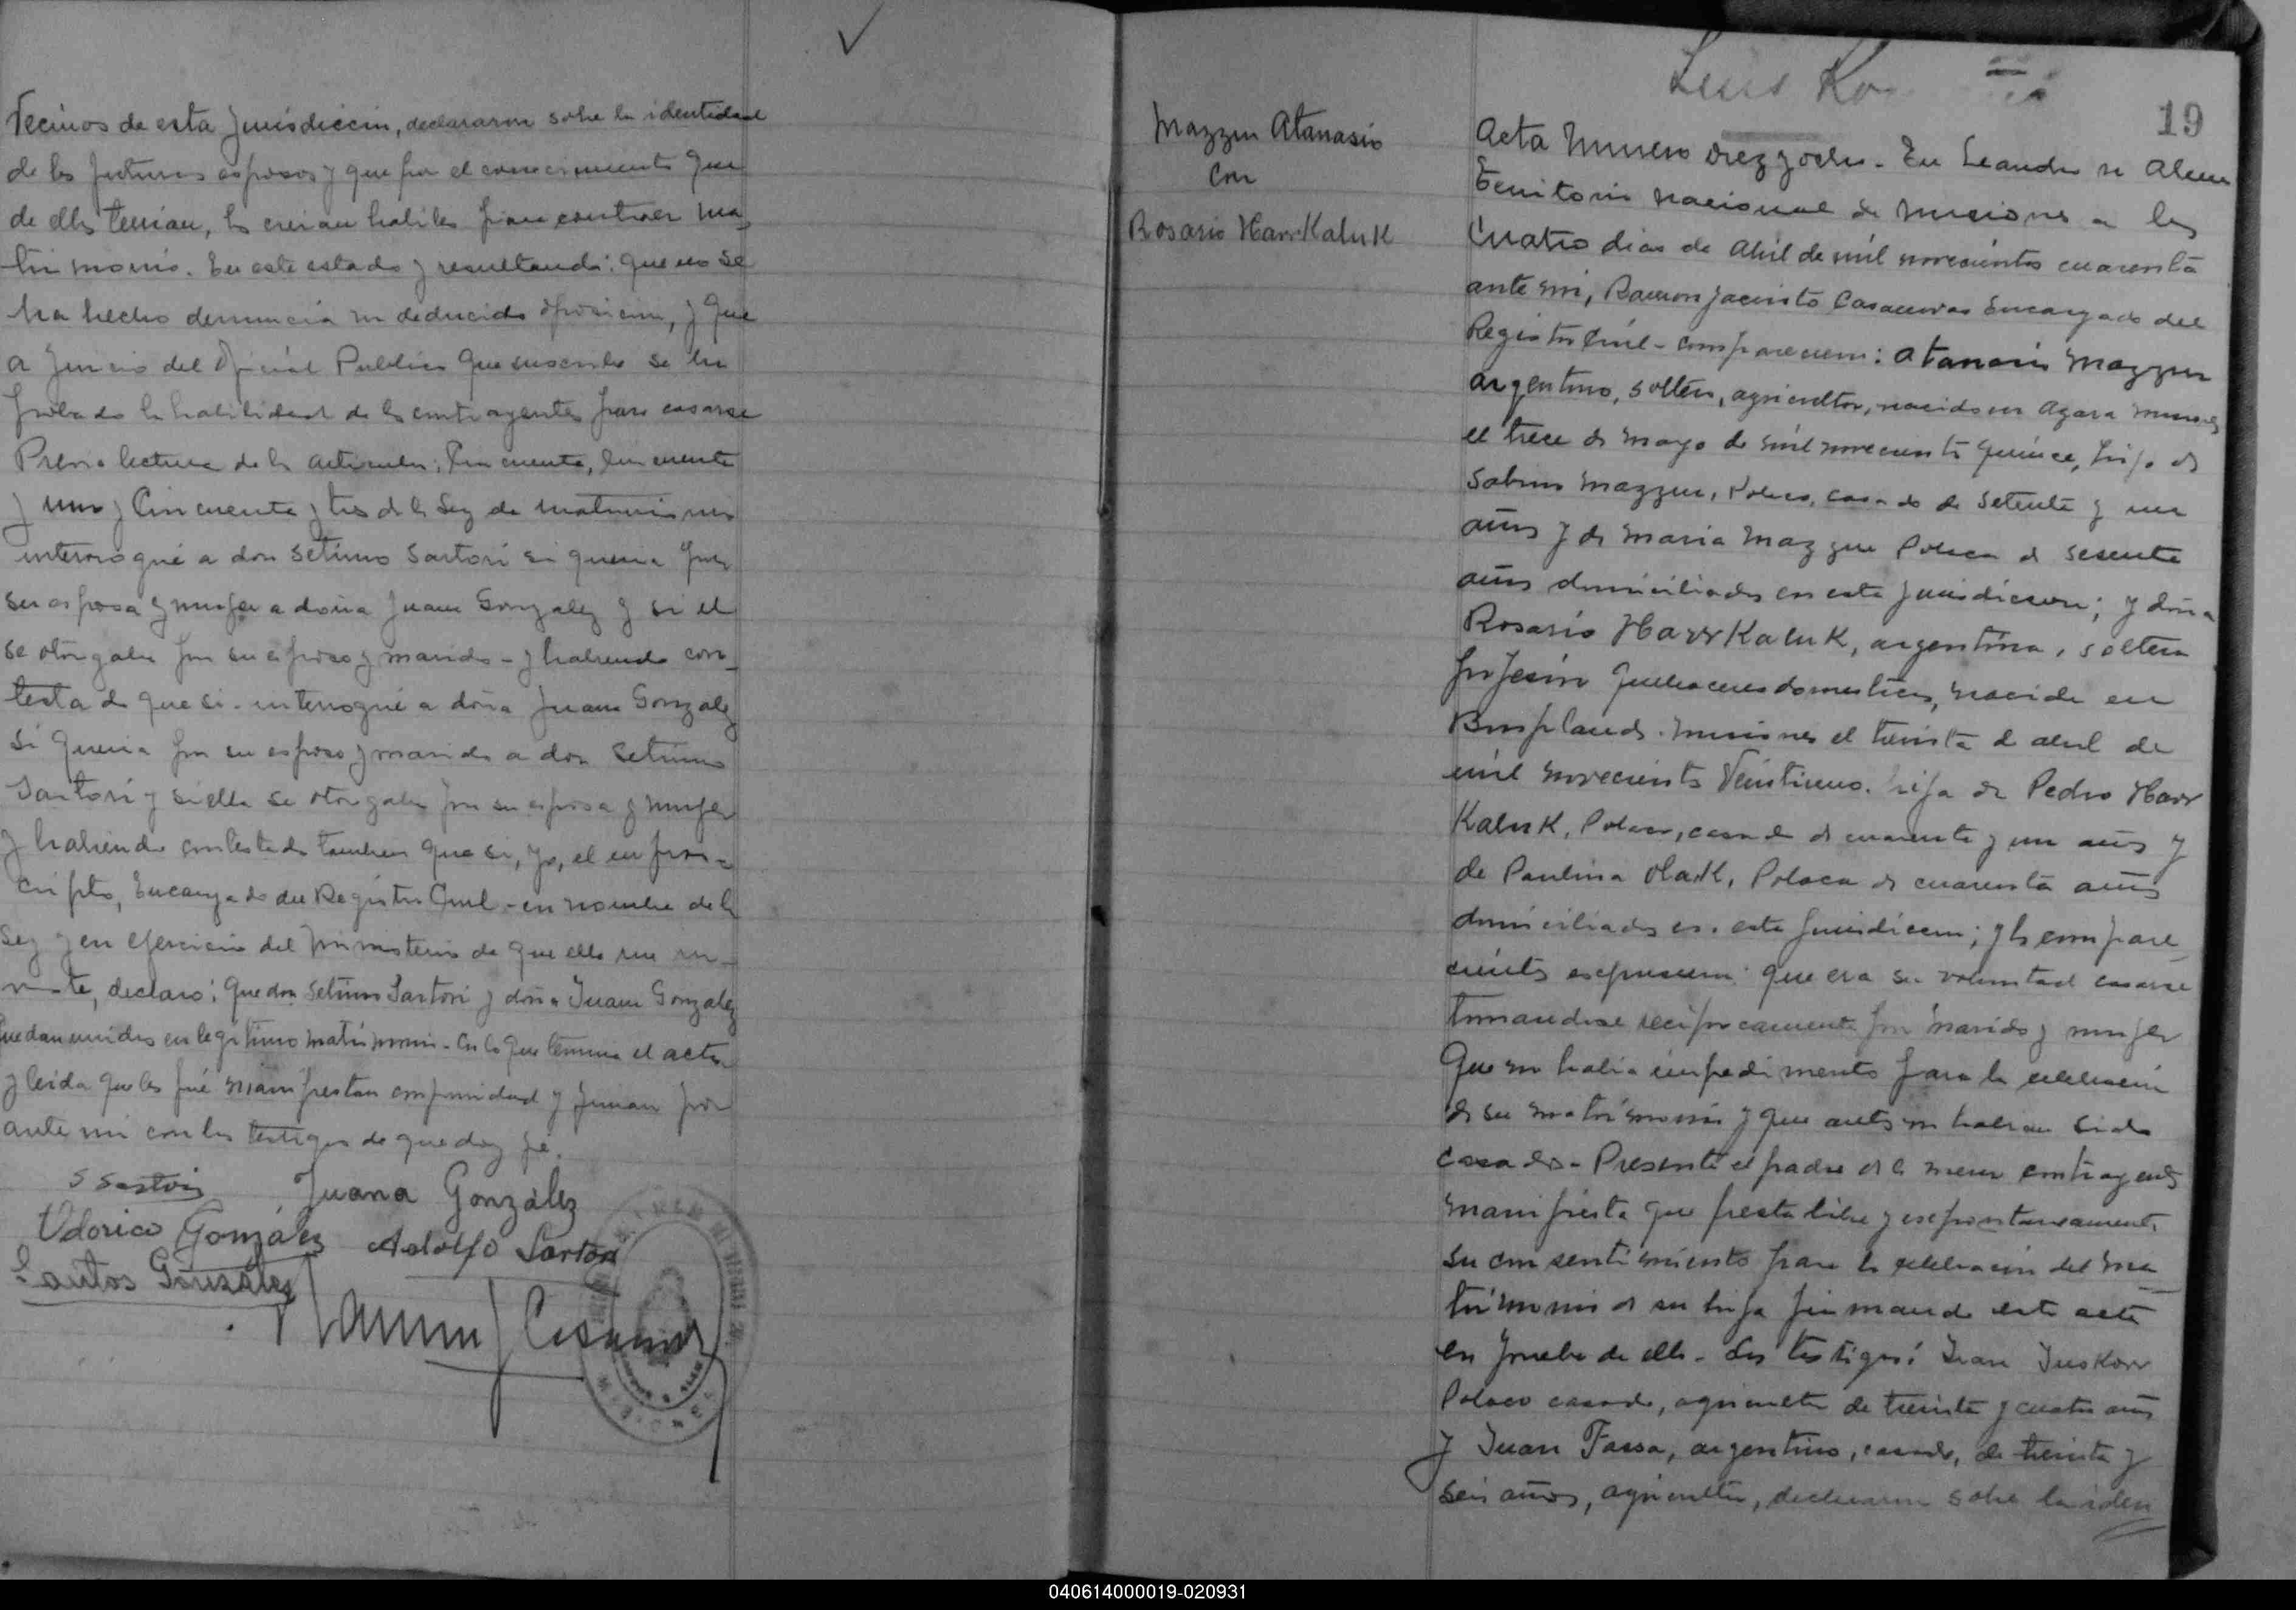 Vecinos de esta Jurisdiccion, declararon sobre la identidad
de los futuros esposos y que por el conocimiento que
de ellos tenian, los creian habiles para contraer ma
trimonio. En este estado y resultando: que no se
ha hecho denuncia ni deducido oposicion, y que
a Juicio del Oficial Publico que suscribe se ha
probado la habilidad de los contrayentes para casarse
Previa lectura de los articulos; Cincuenta, Cincuenta
y uno y Cincuenta y tres de la Ley de matrimonio
interrogué a don Setimo Sartori si queria por
su esposa y mujer a doña Juana Gonzalez y si el
se otorgaba por su esposo y marido - y habiendo con_
testado que si - interrogué a doña Juana Gonzalez
si queria por su esposo y marido a don Setimo
Sartori y si ella se otorgaba por su esposa y mujer
y habiendo contestado tambien que si, yo, el infras-
cripto, Encargado del Registro Civil - en nombre de la
Ley y en ejercicio del ministerio de que ella me in_
viste, declaro: que don Setimo Sartori y doña Juana Gonzalez
quedan unidos en legitimo matrimonio - Con lo que termina el acta
y leida que les fué manifiestan conformidad y firman por
ante mi con los testigos de que doy fé.
S Sartori Juana González
Udorico González Adolfo Sartori
Santos González
Ramon J Casanovas
Luis Ko
19
Mazzun Atanasio
Con
Rosario HarrKaluK
Acta Numero diez y ocho - En Leandro N Alem
Territorio Nacional de Misiones a los
Cuatro dias de Abril de mil novecientos cuarenta
ante mi, Ramon Jacinto Casanovas Encargado del
Registro Civil - comparecieron: Atanasio Mazzun
argentino, soltero, agricultor, nacido en Azara Misiones
el trece de Mayo de mil novecientos quince, hijo de
Mazzun, Polaco, casado de setenta y un
años y de Maria Mazzun Polaca de sesenta
años domiciliados en esta Jurisdiccion; y doña
Rosario HarrKaluK, argentina, soltera
profesión quehaceres domesticos, nacida en
Bonpland. Misiones el treinta de abril de
mil novecientos Veintiuno. hija de Pedro Harr
KaluK, Polaco, casado de cuarenta y un años y
de Paulina Polaca de cuarenta años
domiciliados en esta Jurisdiccion; y los compare_
cientes expusieron: que era su voluntad casarse
tomandose reciprocamente por marido y mujer
Que no habia impedimento para la celebración
de su matrimonio y que antes no habian sido
casados - Presente el padre de la menor contrayente
manifiesta que presta libre y espontaneamente
su consentimiento para la celebración del ma_
trimonio de su hija firmando esta acta
en prueba de ello - Los testigos: Juan
Polaco casado, agricultor de treinta y cuatro años
y Juan Fassa, argentino, casado, de treinta y
seis años, agricultor, declararon sobre la iden
040614000019-020931